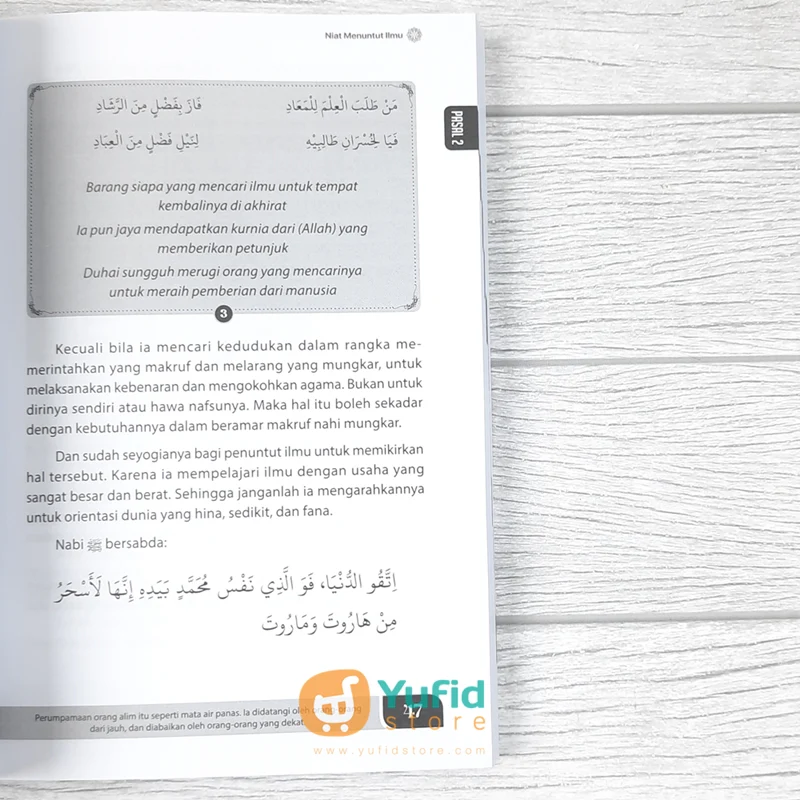 Niat Menuntut Ilmu
PASAL 2
مَنْ طَلَبَ الْعِلْمَ لِلْمَعَادِ فَازَ بِفَضْلٍ مِنَ الرَّشَادِ
فَيَا لَخُسْرَانِ طَالِبِيْهِ لِنَيْلِ فَضْلٍ مِنَ الْعِبَادِ
Barang siapa yang mencari ilmu untuk tempat
kembalinya di akhirat
Ia pun jaya mendapatkan kurnia dari (Allah) yang
memberikan petunjuk
Duhai sungguh merugi orang yang mencarinya
untuk meraih pemberian dari manusia
3
Kecuali bila ia mencari kedudukan dalam rangka me-
merintahkan yang makruf dan melarang yang mungkar, untuk
melaksanakan kebenaran dan mengokohkan agama. Bukan untuk
dirinya sendiri atau hawa nafsunya. Maka hal itu boleh sekadar
dengan kebutuhannya dalam beramar makruf nahi mungkar.
Dan sudah seyogianya bagi penuntut ilmu untuk memikirkan
hal tersebut. Karena ia mempelajari ilmu dengan usaha yang
sangat besar dan berat. Sehingga janganlah ia mengarahkannya
untuk orientasi dunia yang hina, sedikit, dan fana.
Nabi ﷺ bersabda:
اِتَّقُو الدُّنْيَا، فَوَ الَّذِي نَفْسُ مُحَمَّدٍ بَيَدِهِ إِنَّهَا لَأَسْحَرُ
مِنْ هَارُوتَ وَمَارُوتَ
Perumpamaan orang alim itu seperti mata air panas. Ia didatangi oleh orang-orang
dari jauh, dan diabaikan oleh orang-orang yang dekat
Yufid
store
www.yufidstore.com